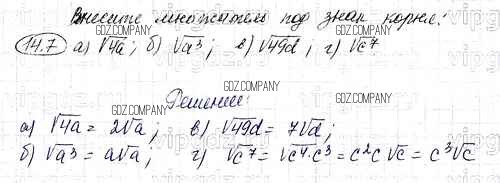 Внесите множитель под знак корня:
14.7 а) √4a; б) √a³; в) √49d; г) √c⁷
GDZ.COMPANY
GDZ.COMPANY
GDZ.COMPANY
Решение:
GDZ.COMPANY
GDZ.COMPANY
а) √4a = 2√a; в) √49d = 7√d;
б) √a³ = a√a; г) √c⁷ = √c⁴·c³ = c²c√c = c³√c